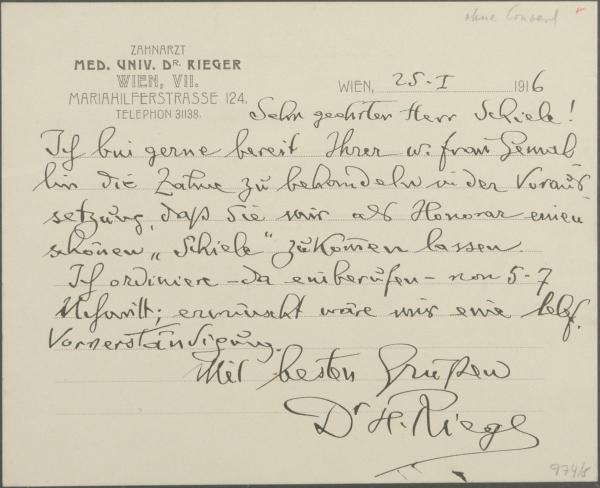 ohne Couvert
ZAHNARZT
MED. UNIV. DR. RIEGER
WIEN, VII.
MARIAHILFERSTRASSE 124.
TELEPHON 31138.
WIEN, 25-I 1916
Sehr geehrter Herr Schiele!
Ich bin gerne bereit Ihrer w. Frau Gemah
lin die Zähne zu behandeln in der Voraus
setzung, daß Sie mir als Honorar einen
schönen „Schiele" zukom̅en lassen.
Ich ordiniere - da einberufen - von 5-7
; erwünscht wäre mir eine telef.
Vorverständigung.
Mit besten Grüßen
Dr H. Rieger
974/5